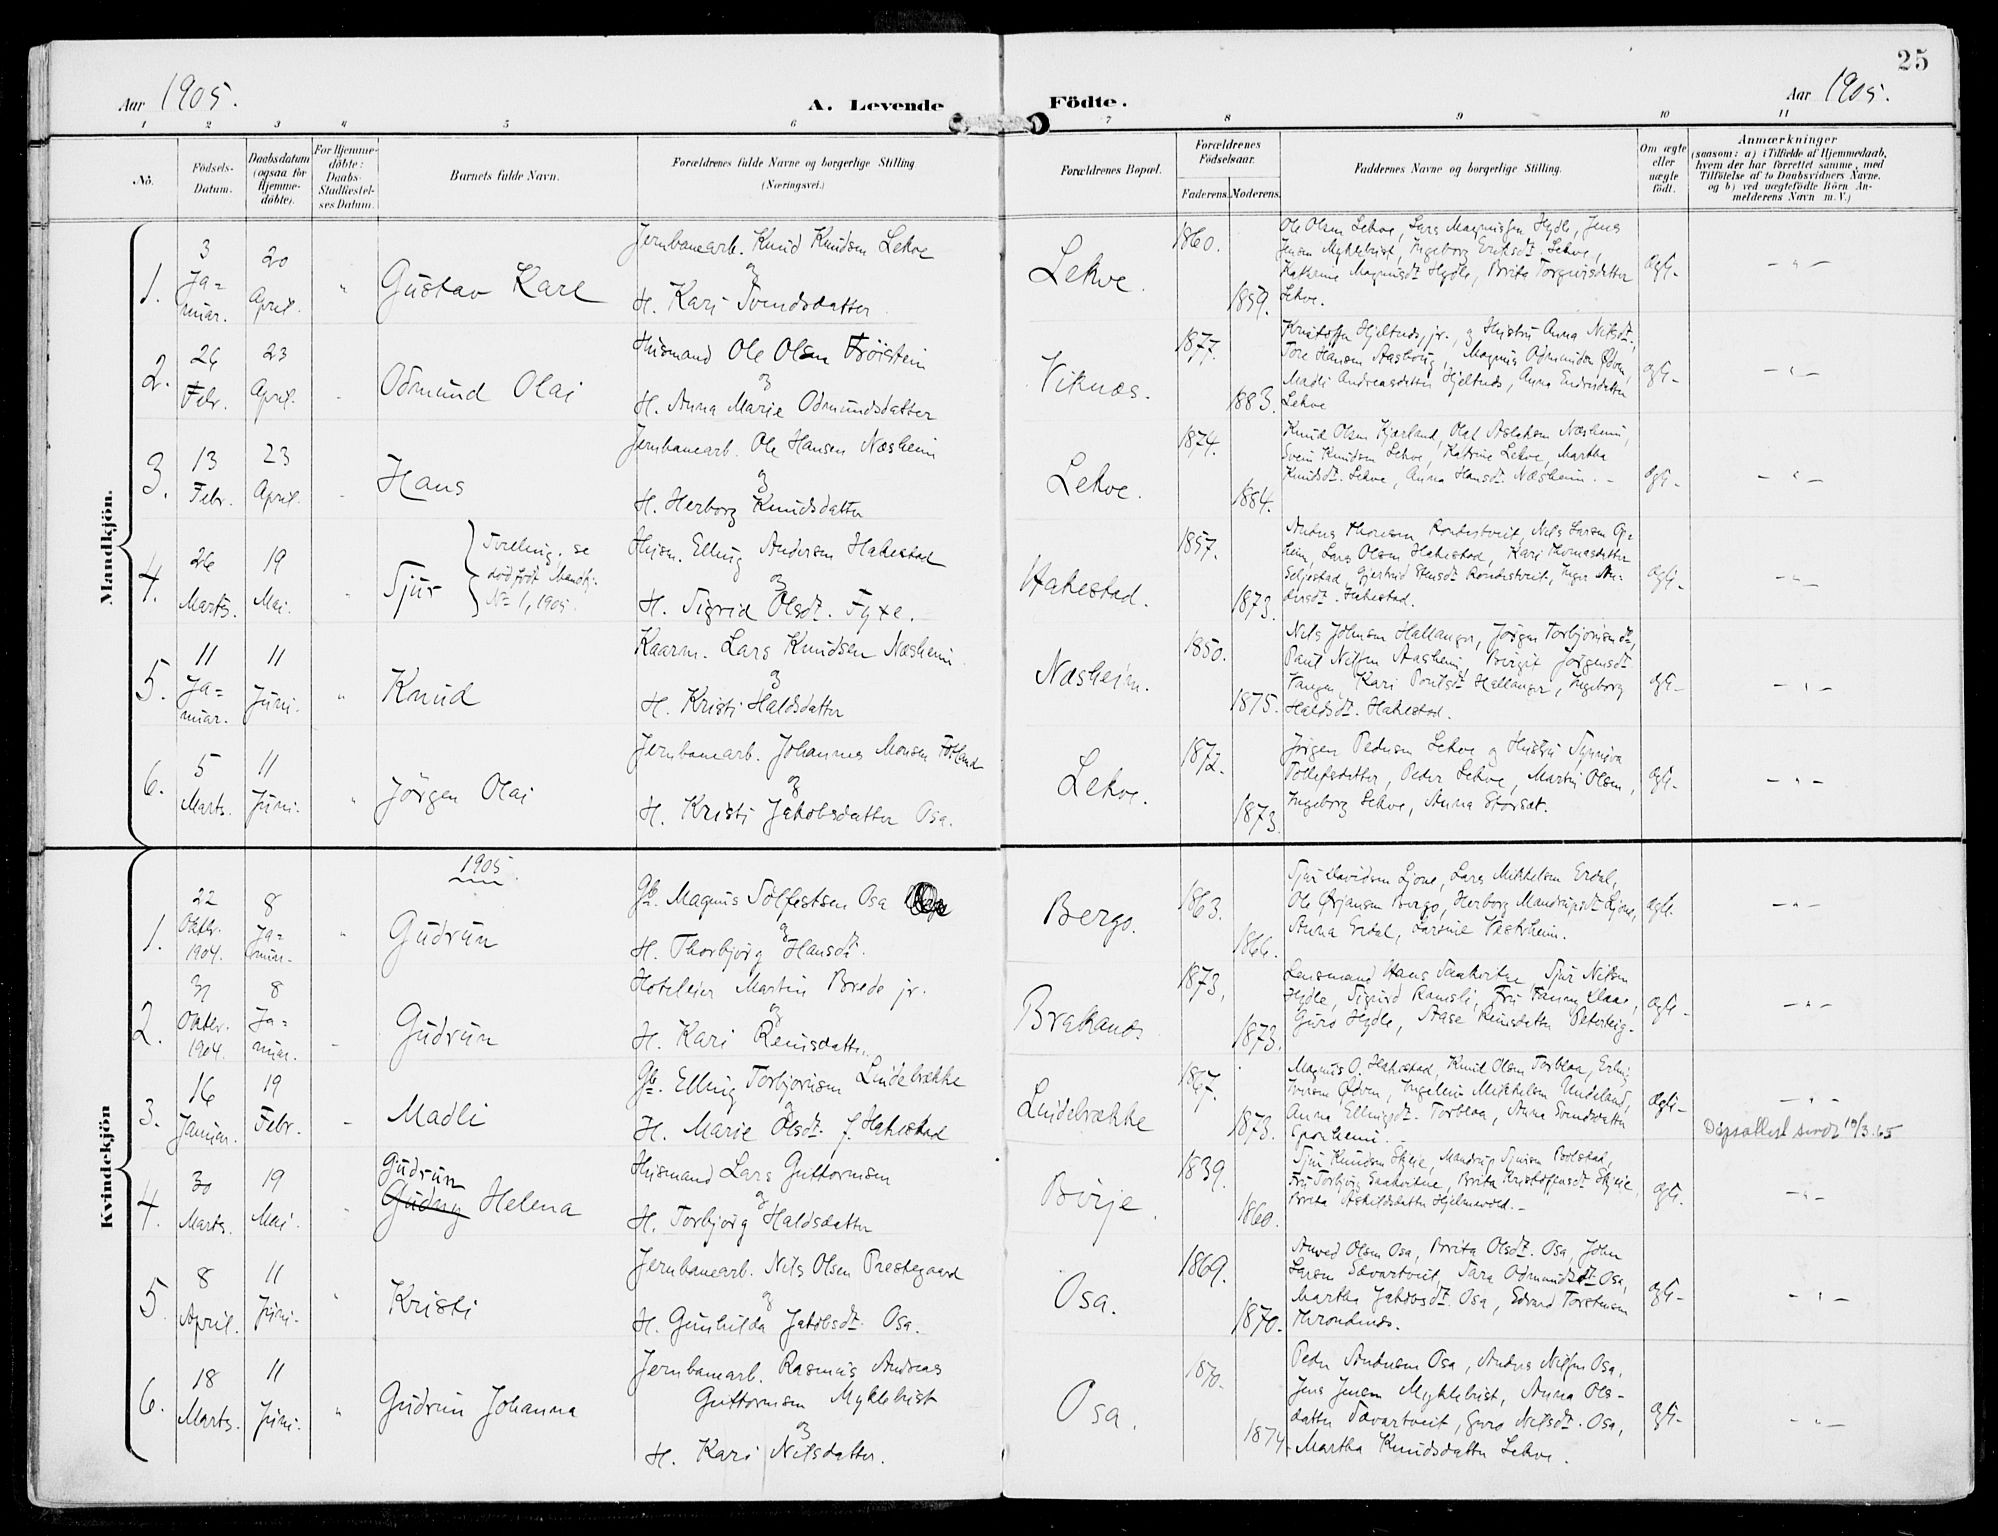 25
Aar 1905.
A. Levende Födte.
Aar 1905.
1 2 3 4 5 6 7 8 9 10 11
No.
Födsels-Datum.
Daabsdatum (ogsaa for Hjemme-döbte).
For Hjemme-döbte: Daabs-Stadfæstel-ses Datum.
Barnets fulde Navn.
Forældrenes fulde Navne og borgerlige Stilling (Næringsvei.)
Forældrenes Bopæl.
Forældrenes Födselsaar.
Faderens. Moderens.
Faddernes Navne og borgerlige Stilling.
Om ægte eller uægte födt.
Anmærkninger
(saasom: a) i Tilfælde af Hjemmedaab,
hvem der har forrettet samme, med
Tilföielse af to Daabsvidners Navne.
og b) ved uægtefödte Börn An-
melderens Navn m. V.)
Mandkjön.
1. 3 Ja=nuar. 20 April. " Gustav Karl
Jernbanearb. Knud Knudsen Lekve
og
H. Kari Svendsdatter
Lekve. 1860. 1859.
Ole Olsen Lekve, Lars Magnussen Hydle, Jens
Jensen Myklebust, Ingeborg Eriksdt. Lekve,
Kathrine Magnusdt. Hydle, Brita Torgeirsdatter
Lekve.
ægte - " -
2. 26 Febr. 23 April. Odmund Olai
Husmand Ole Olsen Trøistein
og
H. Anna Marie Odmundsdatter
Viknæs. 1877. 1883.
Kristoffer Hjeltnes, jr. og Hustru Anna Nilsdt.,
Tore Hansen Aasbövig, Magnus Odmundsen Ødven,
Madli Andreasdatter Hjeltnes, Anna Endresdatter
Lekve
ægte - " -
3. 13 Febr. 23 April. Hans
Jernbanearb. Ole Hansen Næsheim
og
H. Herborg Knudsdatter
Lekve. 1874. 1884.
Knud Olsen Kjærland, Olaf Aslaksen Næsheim,
Svein Knudsen Lekve, Katrine Lekve, Martha
Knudsdt. Lekve, Anna Hansdt. Næsheim. -
ægte - " -
4. 26 Marts. 19 Mai. " Sjur
Tvilling, se
dødfödt Mandkj.
No 1, 1905.
Husm. Elling Andersen Hakestad
og
H. Sigrid Olsdt. Fyxe.
Hakestad. 1857. 1873.
Lars Olsen Hakestad, Kari Thomasdatter
Seljestad,
Hakestad.
ægte - " -
5. 11 Ja=nuar. 11 Juni. " Knud
Kaarm. Lars Knudsen Næsheim.
og
H. Kristi Haldsdatter
Næsheim. 1850. 1875.
Nils Johnsen Hallanger, Jørgen Torbjørnsen dt.,
Paul Nilsen Aasheim, Birgit Jørgensdt.
Vangen, Kari Poulsdt. Hallanger, Ingeborg
Haldsdt. Hakestad.
ægte - " -
6. 5 Marts. 11 Juni. " Jørgen Olai
Jernbanearb. Johannes Monsen Følland
og
H. Kristi Jakobsdatter Osa.
Lekve. 1872. 1873.
Jørgen Pedersen Lekve og Hustru Synneva
Tollefsdatter, Peder Lekve, Martin Olsen,
Ingeborg Lekve, Anna Størset.
ægte - " -
Kvindekjön
1905.
1. 22 Oktbr. 1904. 8 Ja=nuar. " Gudrun
Gb. Magnus Solfestsen Osa
og
H. Thorbjørg Hansdt.
Bergo. 1863. 1866.
Sjur Davidsen Ljone, Lars Mikkelsen Erdal,
Ole Ørjansen Bergo, Herborg Mandrupsdt. Ljone,
Anna Erdal, Larsine Vestrheim.
ægte. - " -
2. 31 Oktbr. 1904. 8 Ja=nuar. Gudrun
Hoteleier Martin Brede jr.
og
H. Kari Reinsdatter.
Brakanæs 1873, 1873.
Lensmand Hans Saakvitne, Sjur Nilsen
Hydle, Sigurd Ramsli, Fru Fanny Klaas,
Guro Hydle, Aase
ægte - " -
3. 16 Januar. 19 Febr. Madli
Gb. Elling Torbjørnsen Lindebrække
og
H. Marie Olsdt. f. Hakestad
Lindebrække 1867. 1873.
Magnus O. Hakestad, Knut Olsen Torblaa, Erling
Iversen Ødven, Ingeleiv Mikkelsen Undeland,
Anna Ellingsdt. Torblaa, Anna Svendsdatter
Sporheim.
ægte - " -
Dåpsattest sendt 19/3.65
4. 30 Marts. 19 Mai. " Gudrun
Gudny Helena
Husmand Lars Guttormsen
og
H. Torbjørg Haldsdatter
Børje. 1839. 1860.
Sjur Knudsen Skeie, Mandrup Sjursen Bolstad,
Fru Torbjør Saakvitne, Brita Kristoffersdt. Skeie,
Brita Askildsdatter Hjelmevold. -
ægte. - " -
5. 8 April. 11 Juni. " Kristi
Jernbanearb. Nils Olsen Prestegaard
og
H. Gunhilda Jakobsdt. Osa.
Osa. 1869. 1870.
Olsen Osa, Brita Olsdt. Osa, John
Larsen Sævartveit, Sara Odmundsdt. Osa,
Martha Jakobsdt. Osa, Edvard Torstensen
Throndenes.
ægte - " -
6. 18 Marts. 11 Juni. " Gudrun Johanna
Jernbanearb. Rasmus Andreas
Guttormsen Myklebust
og
H. Kari Nilsdatter.
Osa. 1870. 1874.
Peder Andersen Osa, Anders Nilsen Osa,
Jens Jensen Myklebust, Anna Ols-
datter Sævartveit, Guro Nilsdt. Osa,
Martha Knudsdatter Lekve.
ægte - " -